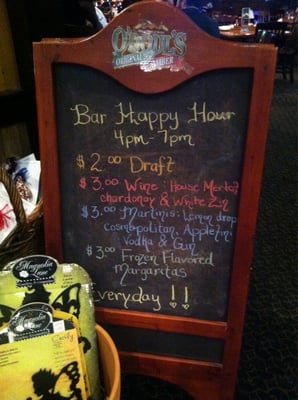 O'DOUL'S
ORIGINAL
AMBER
Bar Happy Hour
4pm-7pm
$2.00 Draft
$3.00 Wine: House Merlot
chardonay & White Zin
$3.00 Martinis: Lemon drop
cosmopolitan, Appletini
Vodka & Gin
$3.00 Frozen Flavored
Margaritas
Everyday !!
Magnolia Lane
Magnolia Lane